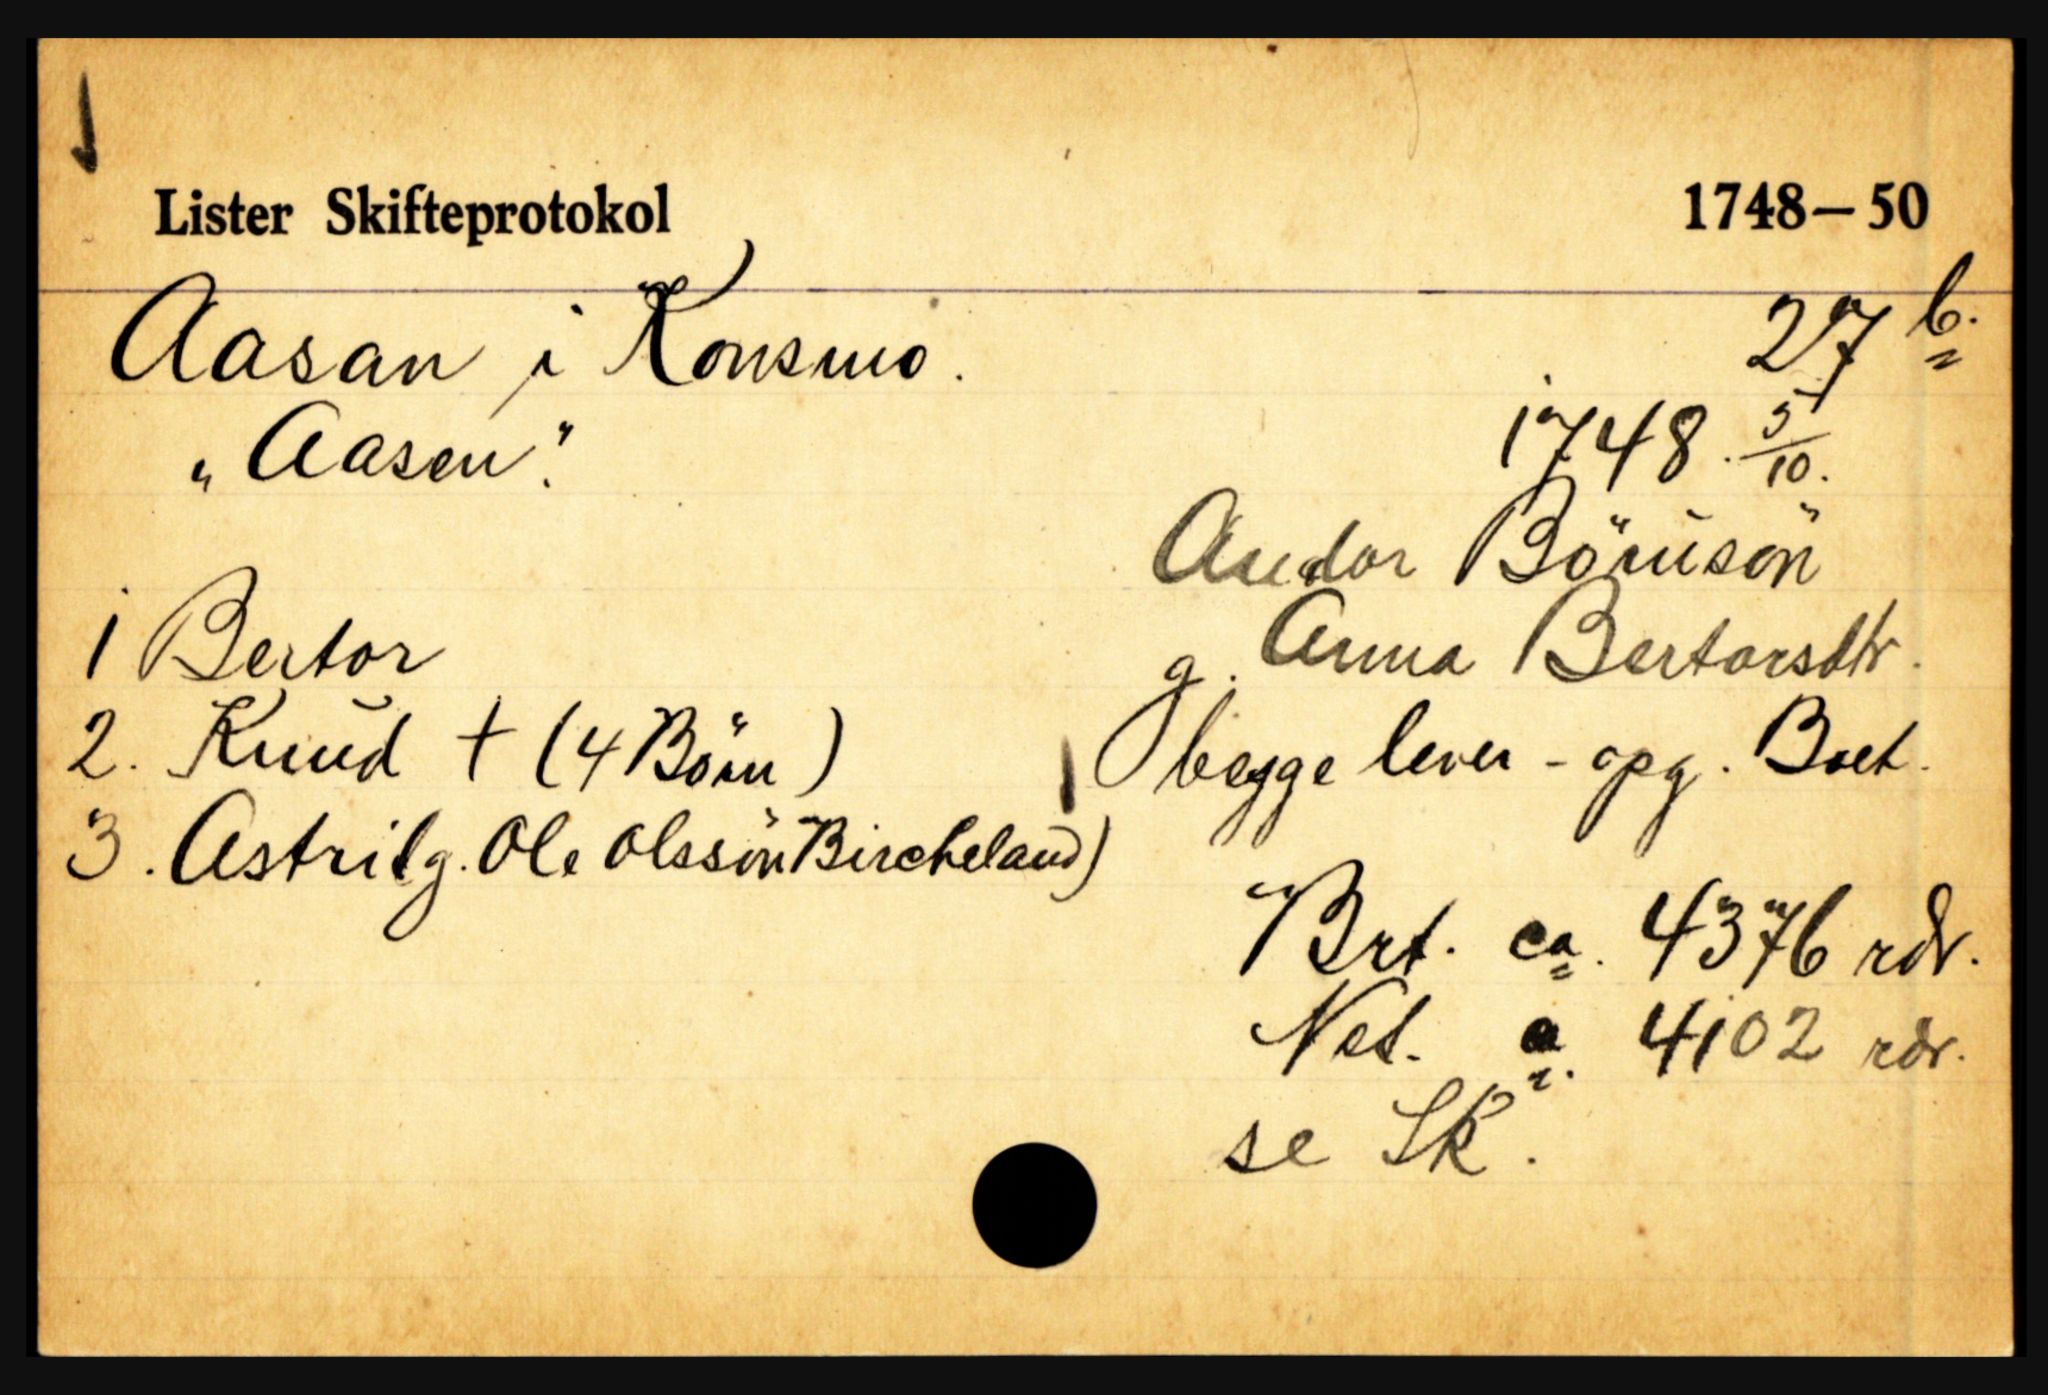 Lister Skifteprotokol 1748—50
Aasan i Konsmo. 27 b.
„Aasen". 1748. 5/10.
Andor Börúsön
1 Bertor
g. Anna Bertorsdtr.
2. Knúd † (4 Börn)
begge lever - opg. Boet.
3. Astri g. Ole Olssön Bircheland)
Brt. ca. 4376 rdr.
Net. ca. 4102 rdr.
se Sk.